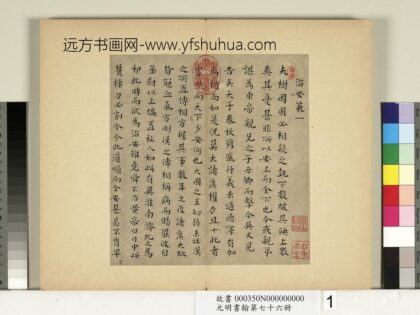 远方书画网-www.yfshuhua.com
治安策一
夫樹國固必相疑之勢下數被其殃上數
爽其憂甚非所以安上而全下也今或親弟
謀為東帝親兄之子西鄉而擊今吳又見
告矣天子春秋鼎盛行義未過德澤有加
焉猶尚如是況莫大諸侯權力且十此者
然而天下少安何也大國之王幼弱未壯漢
之所置傅相方握其事數年之後諸侯大抵
皆冠血氣方剛漢之傅相稱病而賜罷彼自
丞尉以上偏置私人如此有異淮南濟北之為
邪此時而欲為治安雖堯舜不治黃帝曰日中必
操刀必割今令此道順而全安甚易不肯早
故書 000350N000000000
元明書翰第七十六冊
1